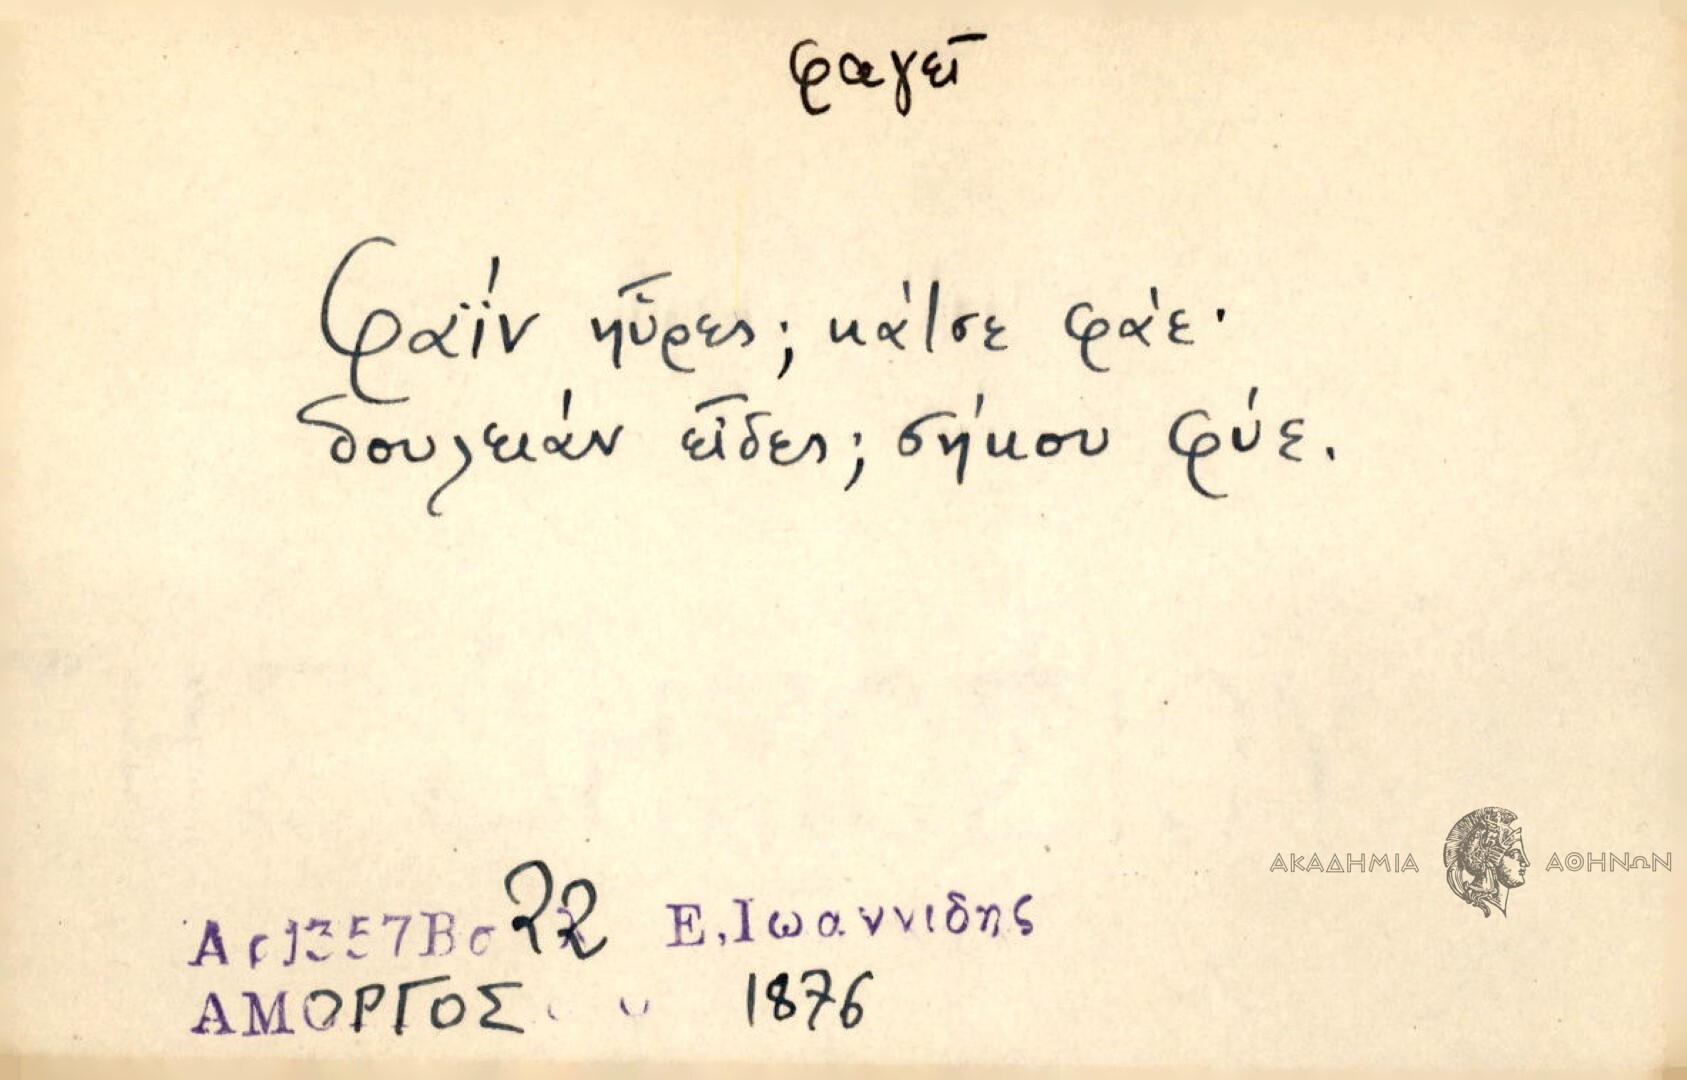 φαγεῖ
Φαΐν ηὗρες; κάτσε φάε·
δουλειάν εἶδες; σήκου φύε.
ΑΚΑΔΗΜΙΑ ΑΘΗΝΩΝ
Αρ1357Βσ 22 Ε.Ιωαννιδης
ΑΜΟΡΓΟΣ 1876